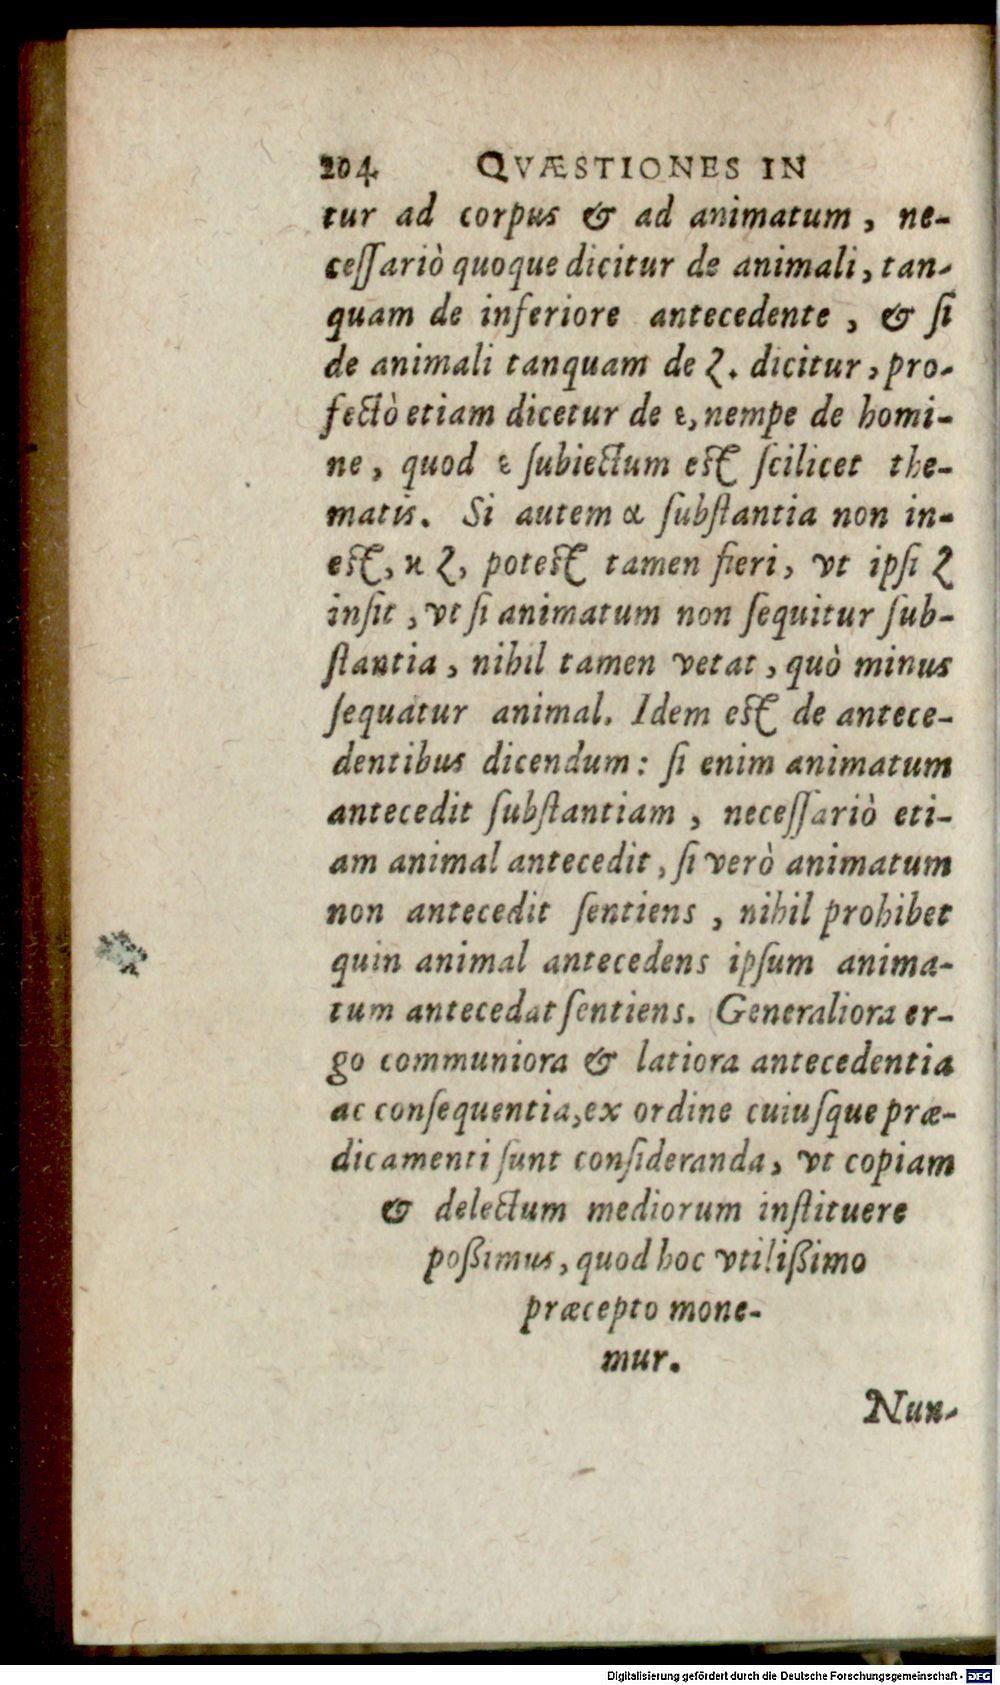 204 QVÆSTIONES IN
tur ad corpus & ad animatum, ne-
ceſſariò quoque dicitur de animali, tan-
quam de inferiore antecedente, & ſi
de animali tanquam de ζ. dicitur, pro-
fectò etiam dicetur de ε, nempe de homi-
ne, quod ε ſubiectum eſt ſcilicet the-
matis. Si autem α ſubſtantia non in-
eſt, ϰ ζ, poteſt tamen fieri, vt ipſi ζ
inſit, vt ſi animatum non ſequitur ſub-
ſtantia, nihil tamen vetat, quò minus
ſequatur animal. Idem eſt de antece-
dentibus dicendum: ſi enim animatum
antecedit ſubſtantiam, neceſſariò eti-
am animal antecedit, ſi verò animatum
non antecedit ſentiens, nihil prohibet
quin animal antecedens ipſum anima-
tum antecedat ſentiens. Generaliora er-
go communiora & latiora antecedentia
ac conſequentia, ex ordine cuiuſque præ-
dicamenti ſunt conſideranda, vt copiam
& delectum mediorum inſtituere
poßimus, quod hoc vtilißimo
præcepto mone-
mur.
Nun-
Digitalisierung gefördert durch die Deutsche Forschungsgemeinschaft - DFG